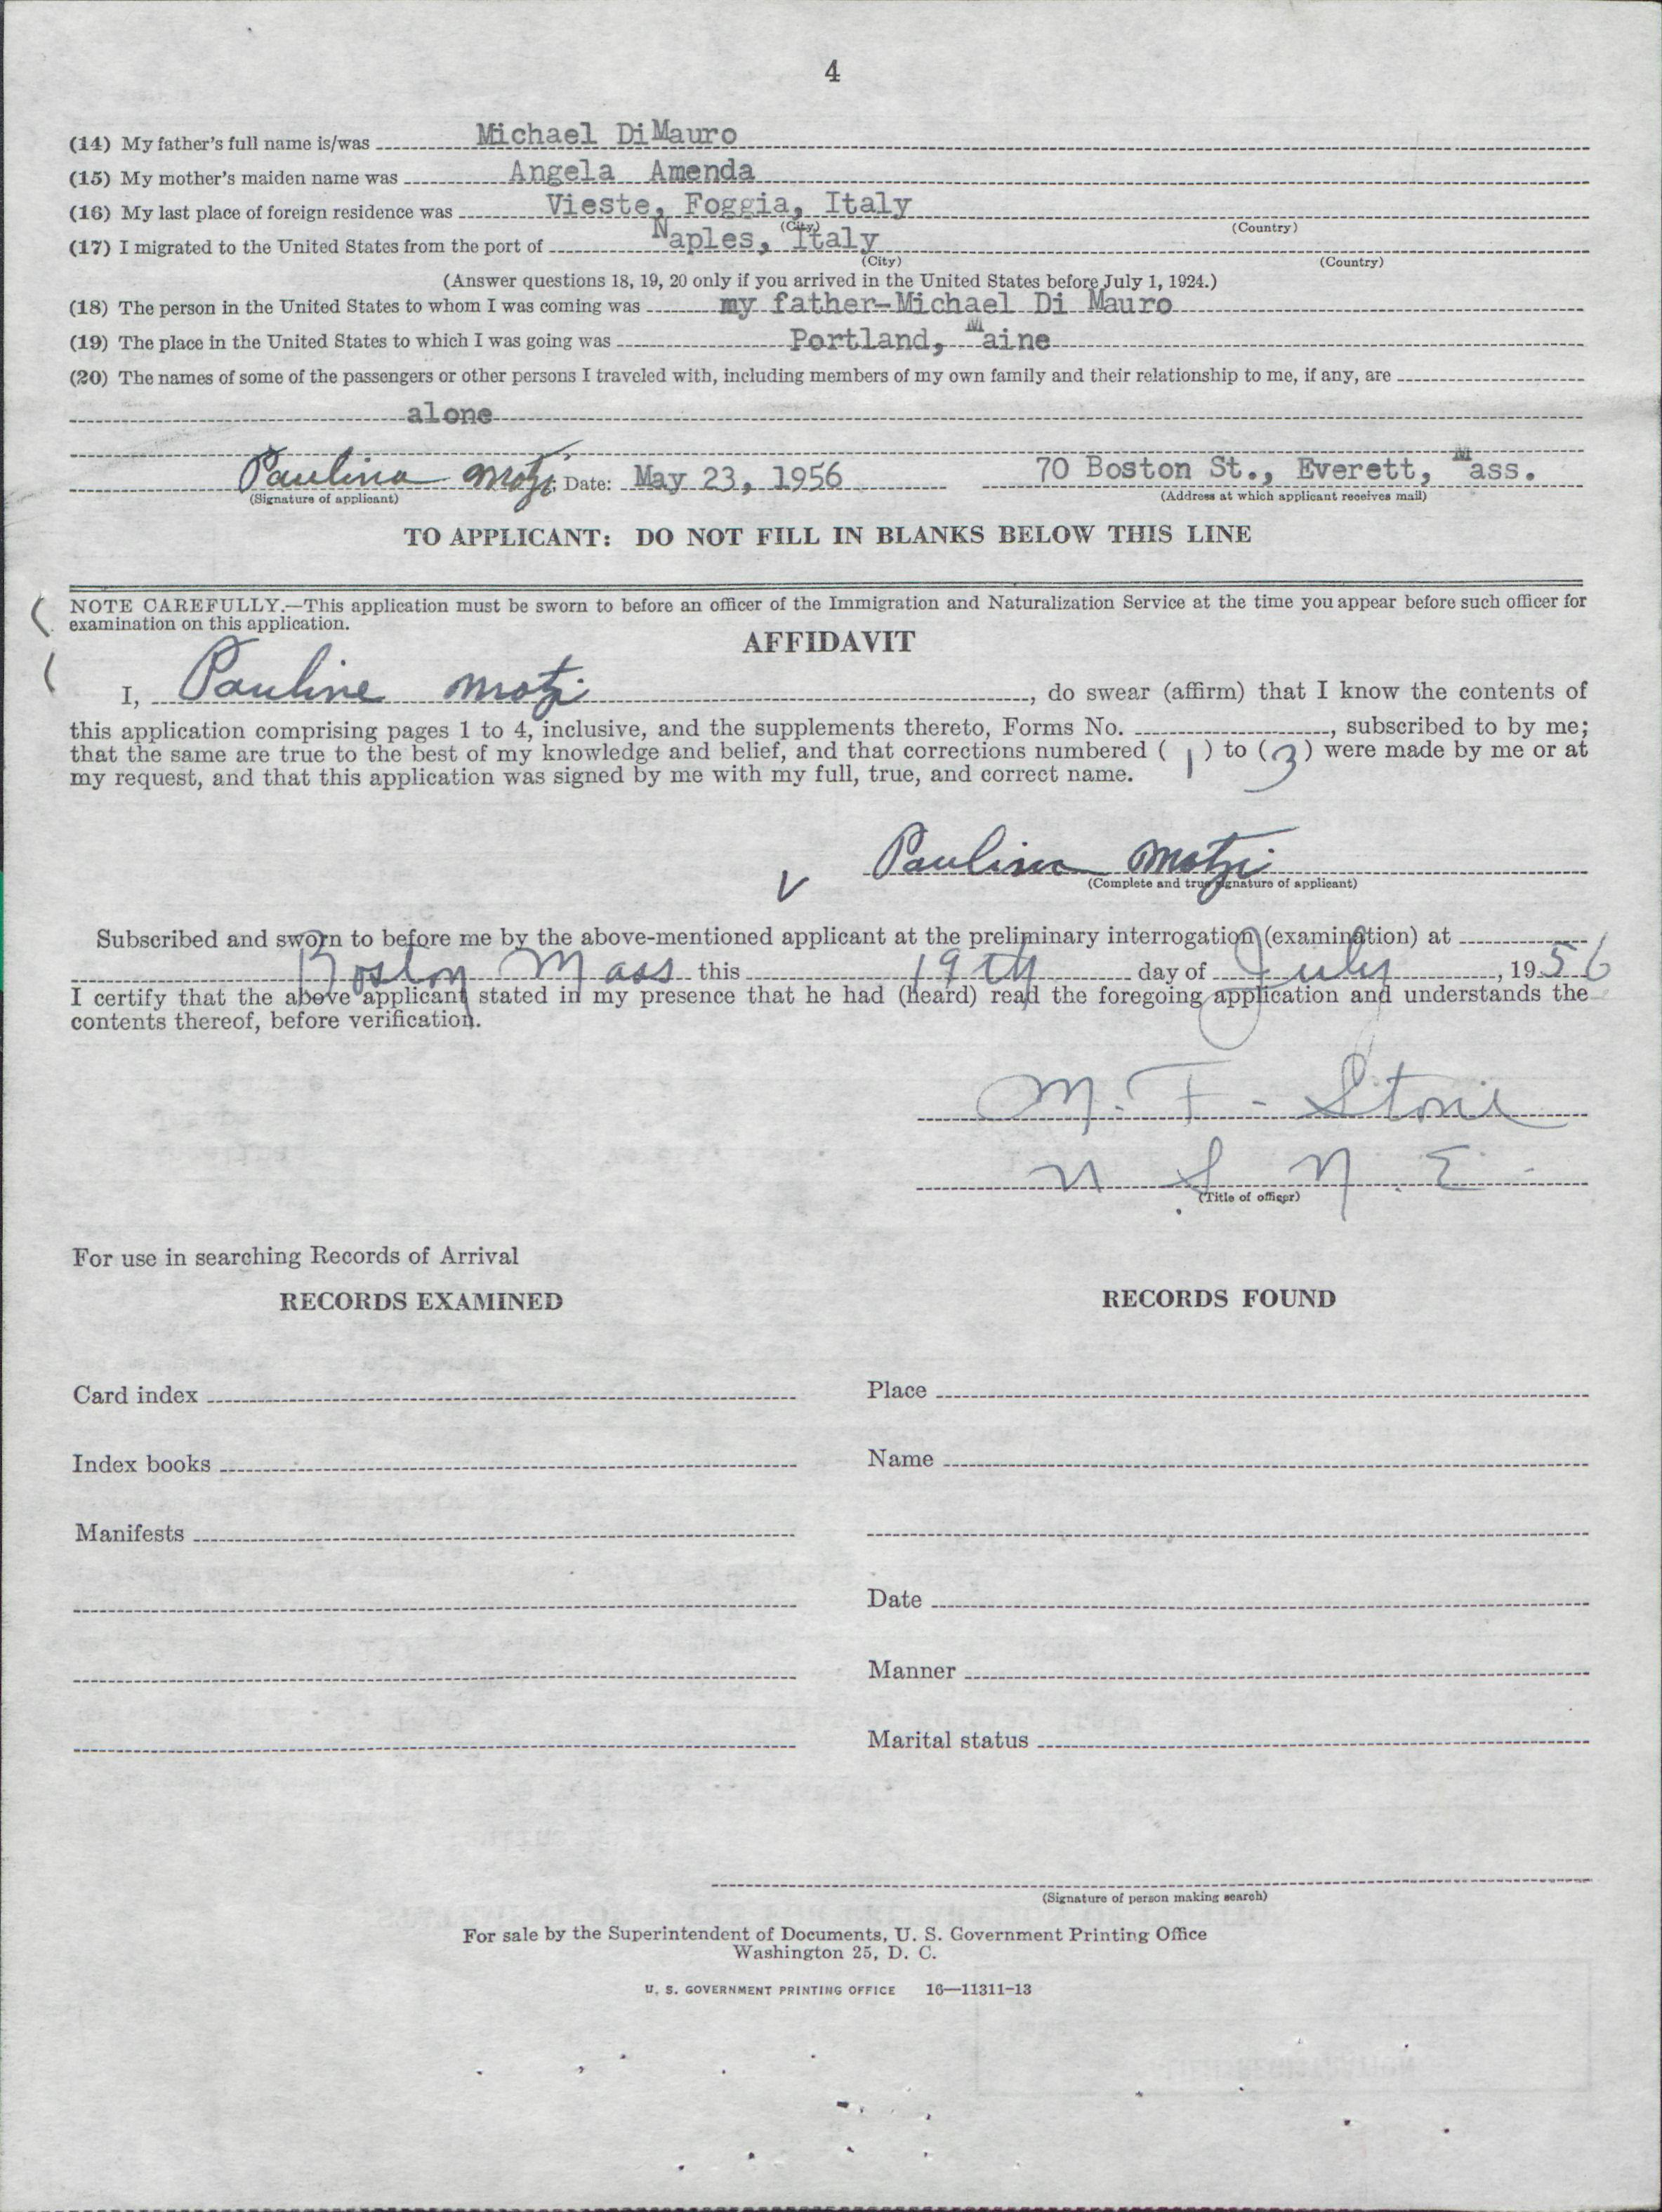 4
(14) My father's full name is/was Michael DiMauro
(15) My mother's maiden name was Angela Amenda
(16) My last place of foreign residence was Vieste, Foggia, Italy
(City) (Country)
(17) I migrated to the United States from the port of Naples, Italy
(City) (Country)
(Answer questions 18, 19, 20 only if you arrived in the United States before July 1, 1924.)
(18) The person in the United States to whom I was coming was my father-Michael Di Mauro
(19) The place in the United States to which I was going was Portland, Maine
(20) The names of some of the passengers or other persons I traveled with, including members of my own family and their relationship to me, if any, are
alone
Paulina Motzi; Date: May 23, 1956 70 Boston St., Everett, Mass.
(Signature of applicant) (Address at which applicant receives mail)
TO APPLICANT: DO NOT FILL IN BLANKS BELOW THIS LINE
NOTE CAREFULLY.—This application must be sworn to before an officer of the Immigration and Naturalization Service at the time you appear before such officer for
examination on this application.
AFFIDAVIT
I, Pauline Motzi, do swear (affirm) that I know the contents of
this application comprising pages 1 to 4, inclusive, and the supplements thereto, Forms No. , subscribed to by me;
that the same are true to the best of my knowledge and belief, and that corrections numbered (1) to (3) were made by me or at
my request, and that this application was signed by me with my full, true, and correct name.
Paulina Motzi
(Complete and true signature of applicant)
Subscribed and sworn to before me by the above-mentioned applicant at the preliminary interrogation (examination) at
Boston Mass this 19th day of July, 1956
I certify that the above applicant stated in my presence that he had (heard) read the foregoing application and understands the
contents thereof, before verification.
M. F. Stone
U S N. E.
(Title of officer)
For use in searching Records of Arrival
RECORDS EXAMINED RECORDS FOUND
Card index Place
Index books Name
Manifests
Date
Manner
Marital status
(Signature of person making search)
For sale by the Superintendent of Documents, U. S. Government Printing Office
Washington 25, D. C.
U. S. GOVERNMENT PRINTING OFFICE 16—11311-13